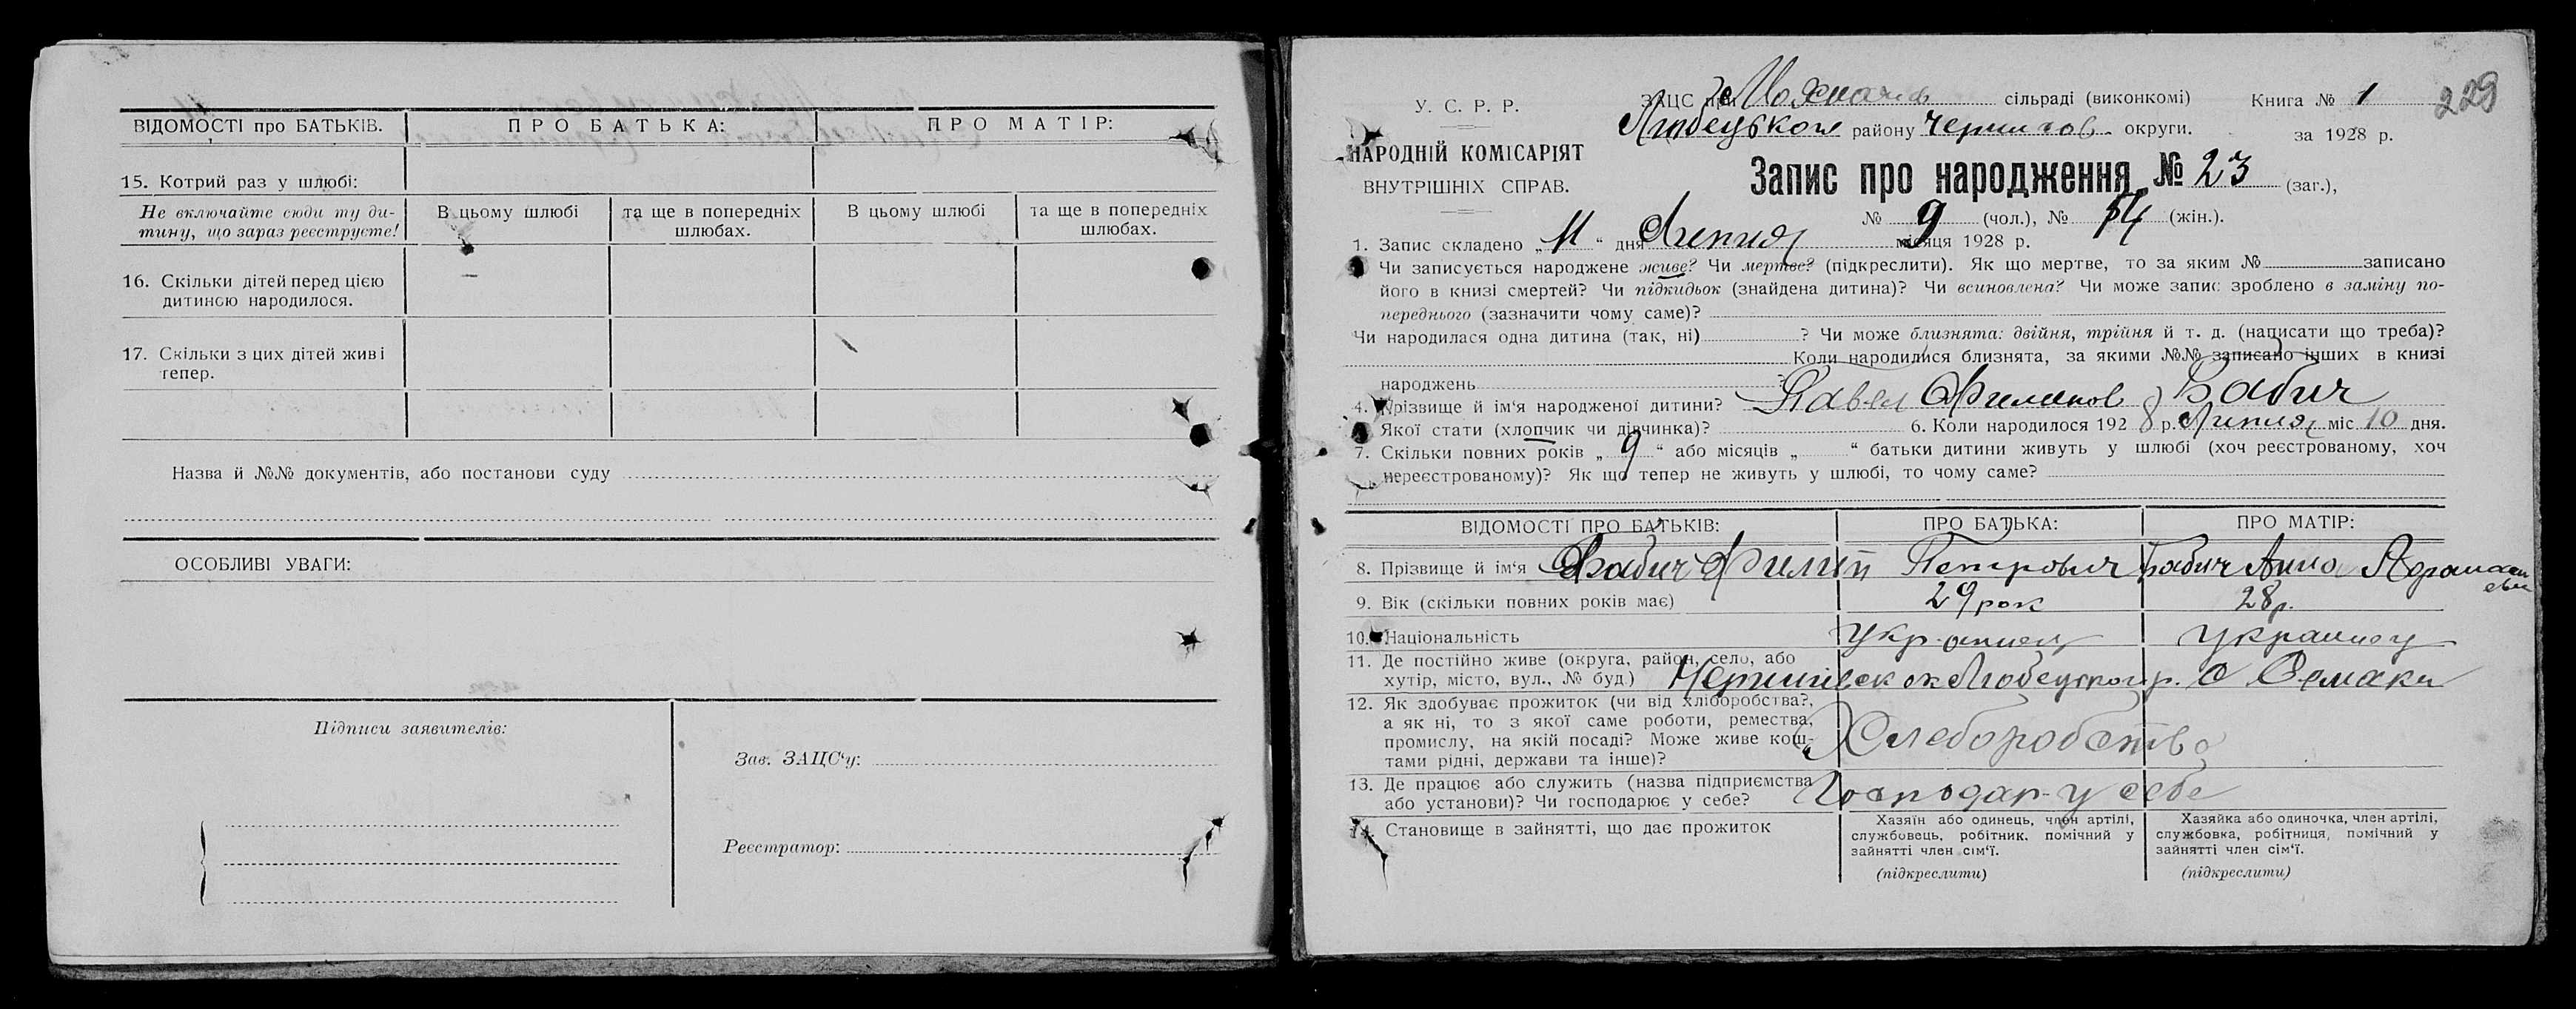 ВІДОМОСТІ про БАТЬКІВ. ПРО БАТЬКА: ПРО МАТІР:
15. Котрий раз у шлюбі:
Не включайте сюди ту ди-
тину, що зараз реєструєте!
В цьому шлюбі
та ще в попередніх
шлюбах.
В цьому шлюбі
та ще в попередніх
шлюбах.
16. Скільки дітей перед цією
дитиною народилося.
17. Скільки з цих дітей живі
тепер.
Назва й №№ документів, або постанови суду
ОСОБЛИВІ УВАГИ:
Підписи заявителів:
Зав. ЗАЦС‘у:
Реєстратор:
229
У. С. Р. Р.
НАРОДНІЙ КОМІСАРІЯТ
ВНУТРІШНІХ СПРАВ.
ЗАЦС при сільраді (виконкомі)
Любецького району Чернигов. округи.
Книга № 1
за 1928 р.
Запис про народження № 23 (заг.),
№ 9 (чол.), № 14 (жін.).
1. Запис складено „11“ дня Липня місяця 1928 р.
Чи записується народжене живе? Чи мертве? (підкреслити). Як що мертве, то за яким № записано
його в книзі смертей? Чи підкидьок (знайдена дитина)? Чи всиновлена? Чи може запис зроблено в заміну по-
переднього (зазначити чому саме)?
Чи народилася одна дитина (так, ні) ? Чи може близнята: двійня, трійня й т. д. (написати що треба)?
Коли народилися близнята, за якими №№ записано інших в книзі
народжень ?
4. Прізвище й ім‘я народженої дитини? Павел Филипов Бабич
Якої статі (хлопчик чи дівчинка)? 6. Коли народилося 1928 р. Липня міс 10 дня.
7. Скільки повних років „9“ або місяців „ “ батьки дитини живуть у шлюбі (хоч реєстрованому, хоч
нереєстрованому)? Як що тепер не живуть у шлюбі, то чому саме?
ВІДОМОСТІ ПРО БАТЬКІВ: ПРО БАТЬКА: ПРО МАТІР:
8. Прізвище й ім‘я Бабич Филип Петрович Бабич Анна
9. Вік (скільки повних років має) 29 рок 28 р.
10. Національність
11. Де постійно живе (округа, район, село, або
хутір, місто, вул., № буд.) ок Любецького р. с Семаки
12. Як здобуває прожиток (чи від хліборобства?,
а як ні, то з якої саме роботи, ремества,
промислу, на якій посаді? Може живе кош-
тами рідні, держави та інше)?
Хлеборобство
13. Де працює або служить (назва підприємства
або установи)? Чи господарює у себе?
Господар у себе
14. Становище в зайнятті, що дає прожиток
Хазяїн або одинець, член артілі,
службовець, робітник, помічний у
зайнятті член сім‘ї.
(підкреслити)
Хазяйка або одиночка, член артілі,
службовка, робітниця, помічний у
зайнятті член сім‘ї.
(підкреслити)